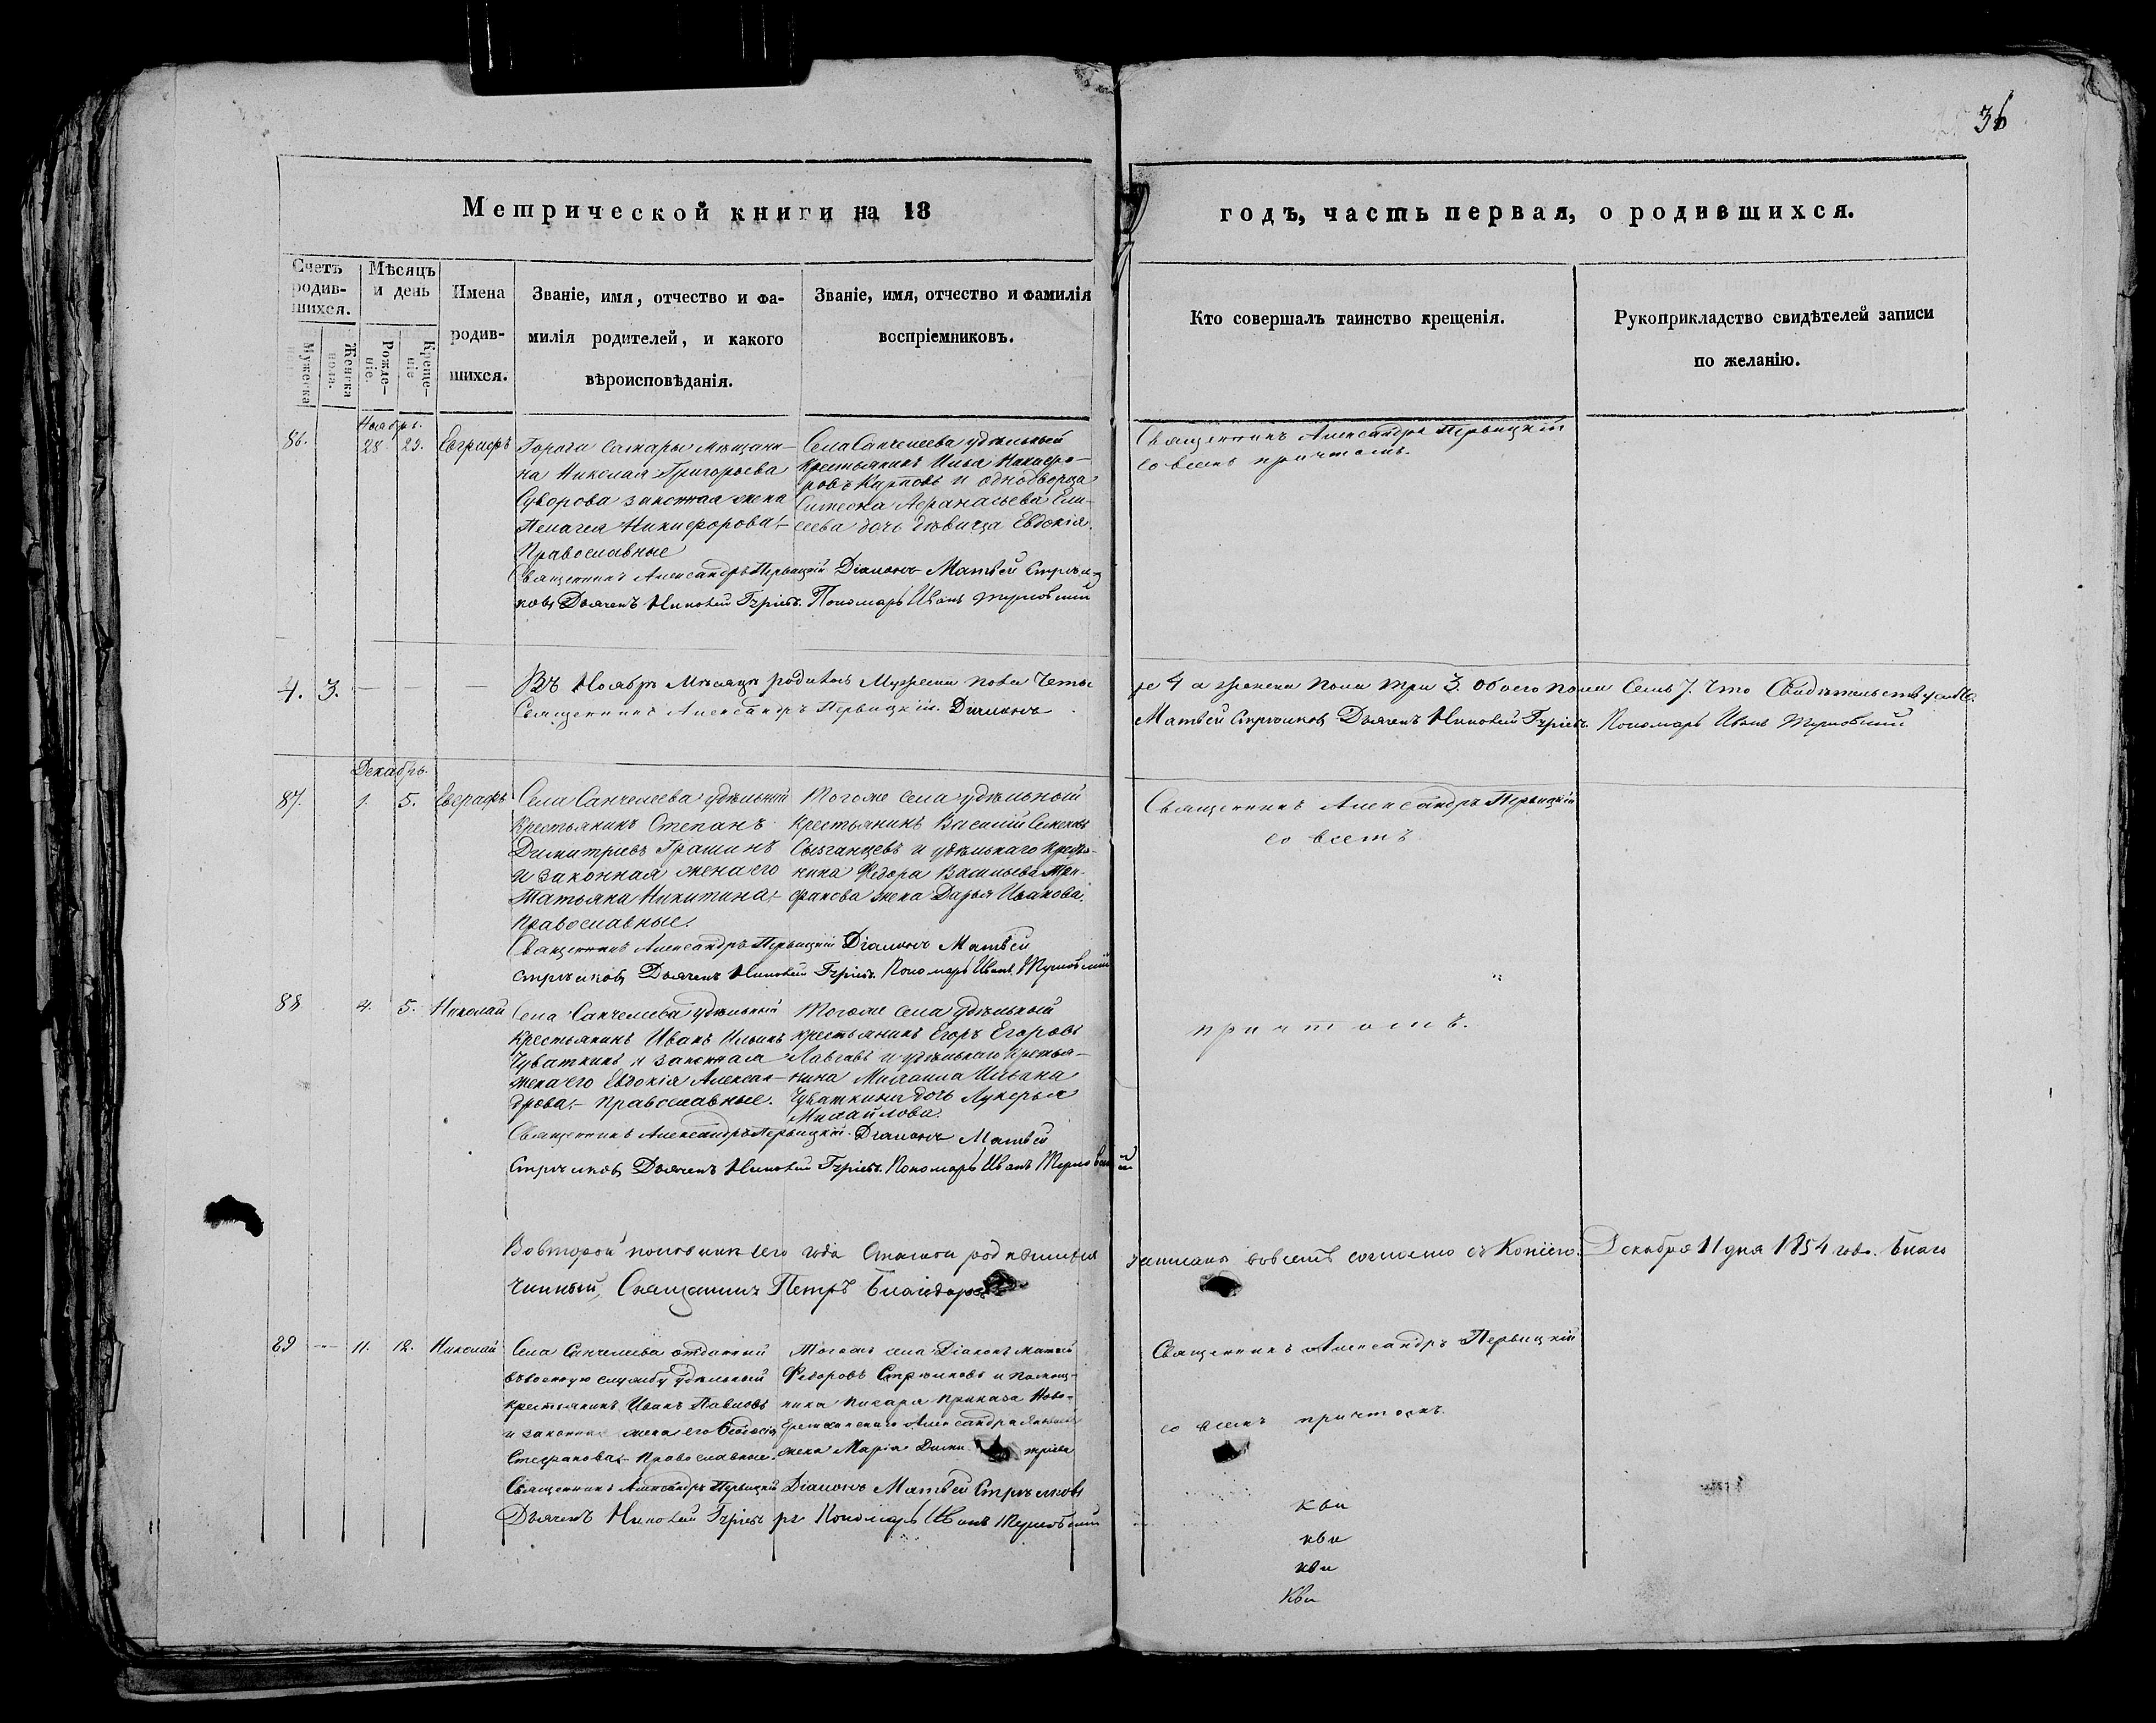 36
Метрической книги на 18
годъ, часть первая, о родившихся.
Счетъ родив-шихся.
Мужеска
Женска пола.
Мѣсяцъ и день
Рожде-ніе.
Креще-ніе
Имена
родив-
шихся.
Званіе, имя, отчество и фа-
милія родителей, и какого
вѣроисповѣданія.
Званіе, имя, отчество и фамилія
воспріемниковъ.
Кто совершалъ таинство крещенія.
Рукоприкладство свидѣтелей записи
по желанію.
Ноябрь.
86. 28 29. Евграфъ
Города Самары мѣщани-
на Николая Григорьева
Суворова законная жена
Пелагея Никифорова,-
Православные
Села Санчелеева удѣльный
крестьянинъ Илья Никифо-
ровъ Карповъ и однодворца
Симеона Афанасьева Ели-
сеева дочь дѣвица Евдокія.
Священникъ Александръ Первицкій
со всемъ причтомъ.
Священникъ Александръ Первицкій Діаконъ Матвѣй Стрѣл-
ковъ Дьячекъ Пономарь Иванъ
4. 3.
Въ Ноябрѣ Мѣсяцѣ родилось Мужеска пола Четы-
ре 4 а женска пола три 3. Обоего пола Семь 7. Что Свидѣтельствуемъ.
Священникъ Александръ Первицкій. Діаконъ
Матвѣй Дьячекъ Пономарь Иванъ
Декабрь.
87. 1. 5. Евграфъ
Села Санчелеева удѣльный
крестьянинъ Степанъ
Димитріевъ Грашинъ
и законная жена его
Татьяна Никитина,-
Православные.
Тогоже села удѣльный
крестьянинъ Василій Семеновъ
Сызганцевъ и удѣльнаго крестья-
нина Ѳедора Васильева
жена Дарья Иванова.
Священникъ Александръ Первицкій
со всемъ
Священникъ Александръ Первицкій Діаконъ Матвѣй
Дьячекъ Пономарь Иванъ
88 4. 5. Николай
Села Санчелеева удѣльный
крестьянинъ Иванъ Ильинъ
Чуваткинъ и законная
жена его Евдокія Алексан-
дрова,- православные.
Тогоже села удѣльный
крестьянинъ Егоръ Егоровъ
и удѣльнаго крестья-
нина Михаила Ильина
Чуваткина дочь Лукерья
Михайлова.
причтомъ.
Священникъ Александръ Первицкій. Діаконъ Матвѣй
Дьячекъ Пономарь Иванъ
Во второй половинѣ сего года Статьи родившихся
записаны вовсемъ согласно съ Копіею. Декабря 11 дня 1854 года. Благо
чинный, Священникъ Петръ
89 -- 11. 12. Николай
Села Санчелеева отданный
въ военную службу удѣльный
крестьянинъ Иванъ Павловъ
и законная жена его Ѳеодосія
Стефанова,- Православные.
Тогоже села Діаконъ Матвѣй
Ѳедоровъ Стрѣлковъ и помощ-
ника писаря приказа Ново-
Александра
жена Марія Дими тріева
Священникъ Александръ Первицкій
со всемъ причтомъ.
Священникъ Александръ Первицкій Діаконъ Матвѣй Стрѣлковъ
Дьячекъ Пономарь Иванъ